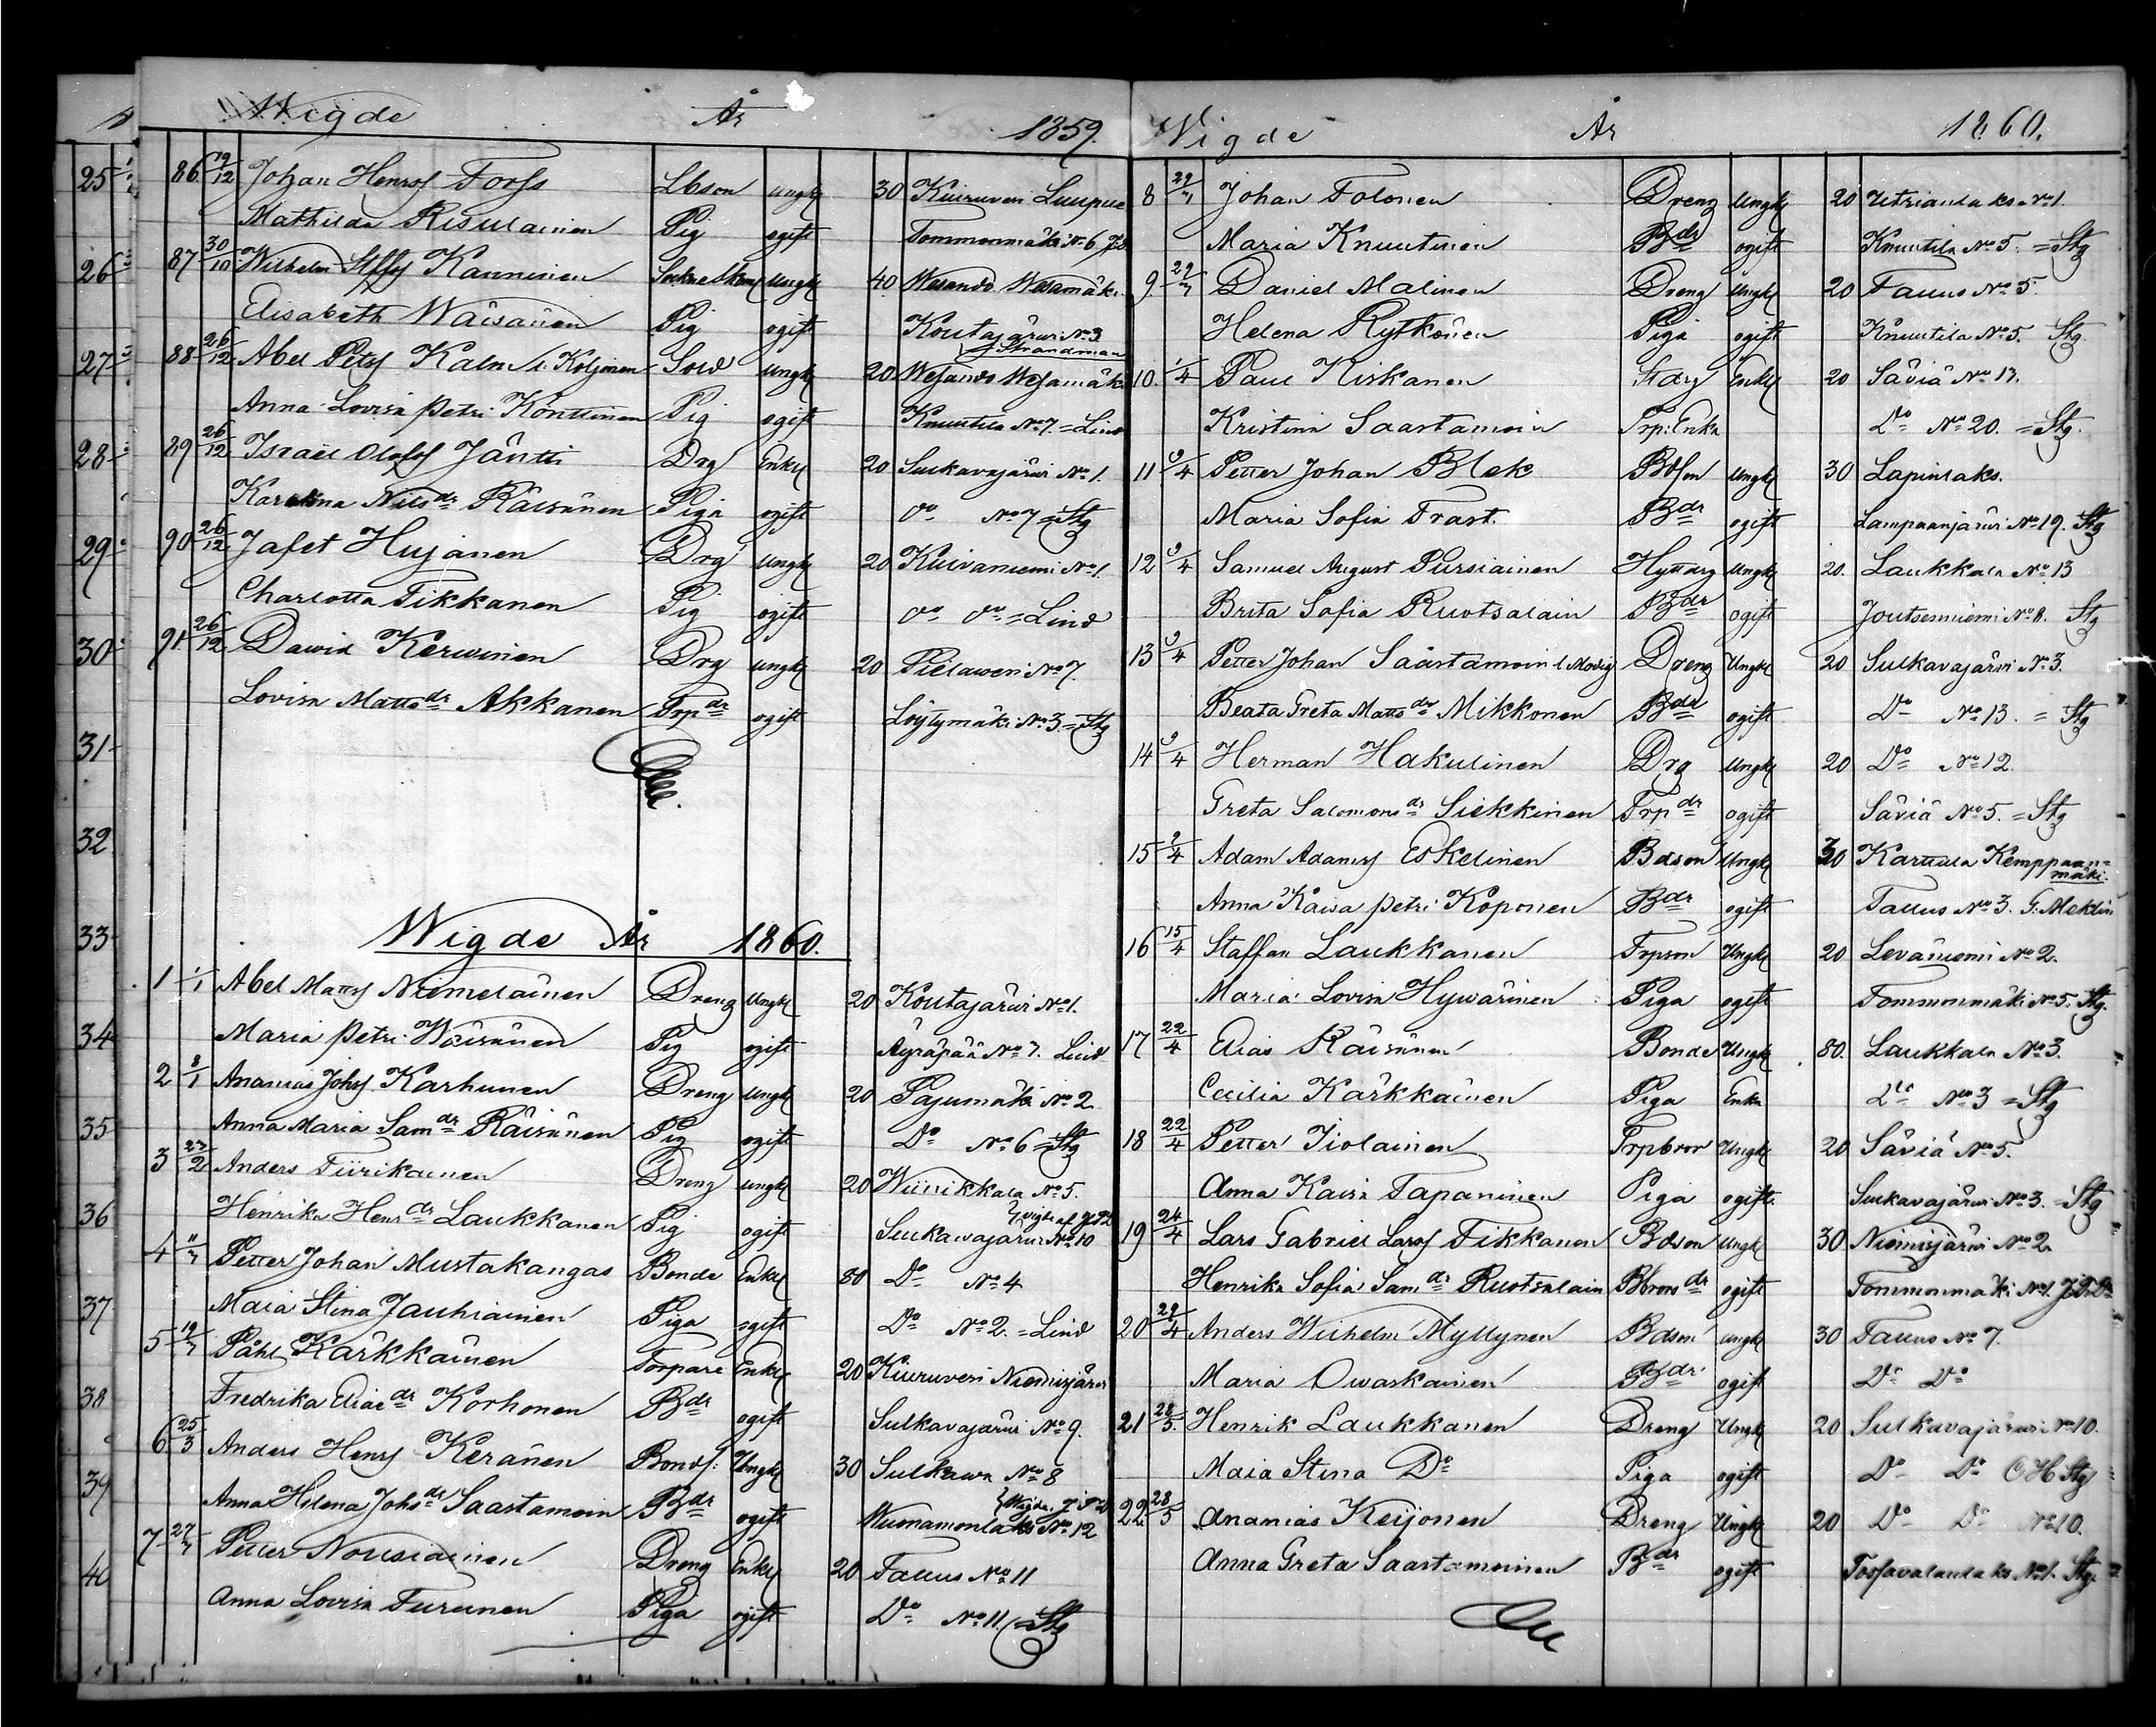 Wigde År 1859.
86 19/12 Johan Henrss Forss Lbson ungk 30 Kiuruvesi Luupue
Mathilda Risulainen Pig ogift Tommonmäki N:o 6
87 30/10 Wilhelm Kauninen ungk 40 Wesando Wesamäki
Elisabeth Wäisänen Pig ogift Koutajärvi N:o 3
Strandman
88 26/12 Abel Petss Kalm l. Koljonen Sold ungk 20 Wesando Wesamäki
Anna Lovisa Petri Könttinen Pig ogift Knuutila N:o 7. = Lind
89 26/12 Israel Olofss Jäntti Drg Enkl 20 Sulkavajärvi N:o 1.
Karolina Nilsdr Räisänen Piga ogift do N:o 7 = Stg
90 26/12 Jafet Hujanen Drg ungk 20 Kuivaniemi N:o 1.
Charlotta Tikkanen Pig ogift do do = Lind
91 26/12 Dawid Kerwinen Drg ungk 20 Pielawesi N:o 7.
Lovisa Mattsdr Akkanen Trpdr ogift Löytymäki N:o 3 = Stg
Wigde År 1860.
1 1/1 Abel Mattss Niemeläinen Dreng Ungk 20 Koutajärvi N:o 1.
Maria Petri Wäisänen Pig ogift Äyräpää N:o 7. Lind
2 8/1 Ananias Johss Karhunen Dreng Ungk 20 Pajumäki N:o 2
Anna Maria Samdr Räisänen Pig ogift Do N:o 6 = Stg
3 27/2 Anders Tiirikainen Dreng ungk 20 Wiinikkala N:o 5.
Henrika Henrdr Laukkanen Pig ogift Sulkavajärvi N:o 10
4 11/3 Petter Johan Mustakangas Bonde Enkl 80 Do N:o 4
Maia Stina Jauhiainen Piga ogift Do N:o 2. = Lind
5 19/3 Påhl Kärkkäinen Torpare Enkl 20 Kiuruvesi Niemisjärvi
Fredrika Eliaedr Korhonen Bdr ogift Sulkavajärvi N:o 9.
6 25/3 Anders Henrss Keränen Bonds: Ungk 30 Sulkava N:o 8
Anna Helena Johsdr Saastamoin Bdr ogift Wuonamonlaks N:o 12
7 27/3 Petter Nousiainen Dreng Enkl 20 Tallus N:o 11
Anna Lovisa Turunen Piga ogift Do N:o 11. = Stg
Wigde År 1860.
8 29/3 Johan Tolonen Dreng Ungk 20 Utrianlaks N:o 1.
Maria Knuutinen Bdr ogift Knuutila N:o 5. = Stg
9 29/3 Daniel Malinen Dreng Ungk 20 Tallus N:o 5.
Helena Rytkönen Piga ogift Knuutila N:o 5. Stg
10. 1/4 Paul Kiskanen Enkl 20 Säviä N:o 13.
Kristina Saastamoin Trp: Enka Do N:o 20. = Stg.
11 9/4 Petter Johan Blek Bdson Ungk 30 Lapinlaks.
Maria Sofia Trast. Bdr ogift Lampaanjärvi N:o 19. Stg
12 9/4 Samuel August Pursiainen Hyttdrg Ungk 20. Laukkala N:o 13
Brita Sofia Ruotsalain Bdr ogift Joutsenniemi N:o 8. Stg
13 9/4 Petter Johan Saastamoin l. Modig Dreng Ungk 20 Sulkavajärvi N:o 3.
Beata Greta Mattsdr Mikkonen Bdr ogift Do N:o 13. = Stg
14 9/4 Herman Hakulinen Drg Ungk 20 Do N:o 12
Greta Salomonsdr Siekkinen Trpdr ogift Säviä N:o 5. = Stg
15 9/4 Adam Adamss Eskelinen Bdson Ungk 30 Karttula Kemppaan=
mäki.
Anna Kaisa Petri Koponen Bdr ogift Tallus N:o 3. G. Meklin
16 15/4 Staffan Laukkanen Trpson Ungk 20 Leväniemi N:o 2.
Maria Lovisa Hywärinen Piga ogift Tommonmäki N:o 5. Stg.
17 22/4 Elias Räisänen Bonde Ungk 80. Laukkala N:o 3.
Cecilia Kärkkäinen Piga Enka Do N:o 3 = Stg
18 22/4 Petter Jiolainen Trpbror Ungk 20 Säviä N:o 5.
Anna Kaisa Tapaninen Piga ogift. Sulkavajärvi N:o 3. = Stg
19 24/4 Lars Gabriel Larss Tikkanen Bdson Ungk 30 Niemisjärvi N:o 2.
Henrika Sofia Samdr Ruotsalain Bbrorsdr ogift Tommonmäki N:o 1.
20 29/4 Anders Wilhelm Myllynen Bdson ungk 30 Tallus N:o 7.
Maria Owaskainen Bdr ogift Do Do
21 28/5. Henrik Laukkanen Dreng Ungk 20 Sulkavajärvi N:o 10.
Maia Stina Do Piga ogift Do Do C H Stg
22. 28/5 Ananias Keijonen Dreng Ungk 20 Do Do N:o 10.
Anna Greta Saastamoinen Bdr ogift Tossavalanlaks N:o 1. Stg.
25
26
27
28
29
30
31
32
33
34
35
36
37
38
39
40